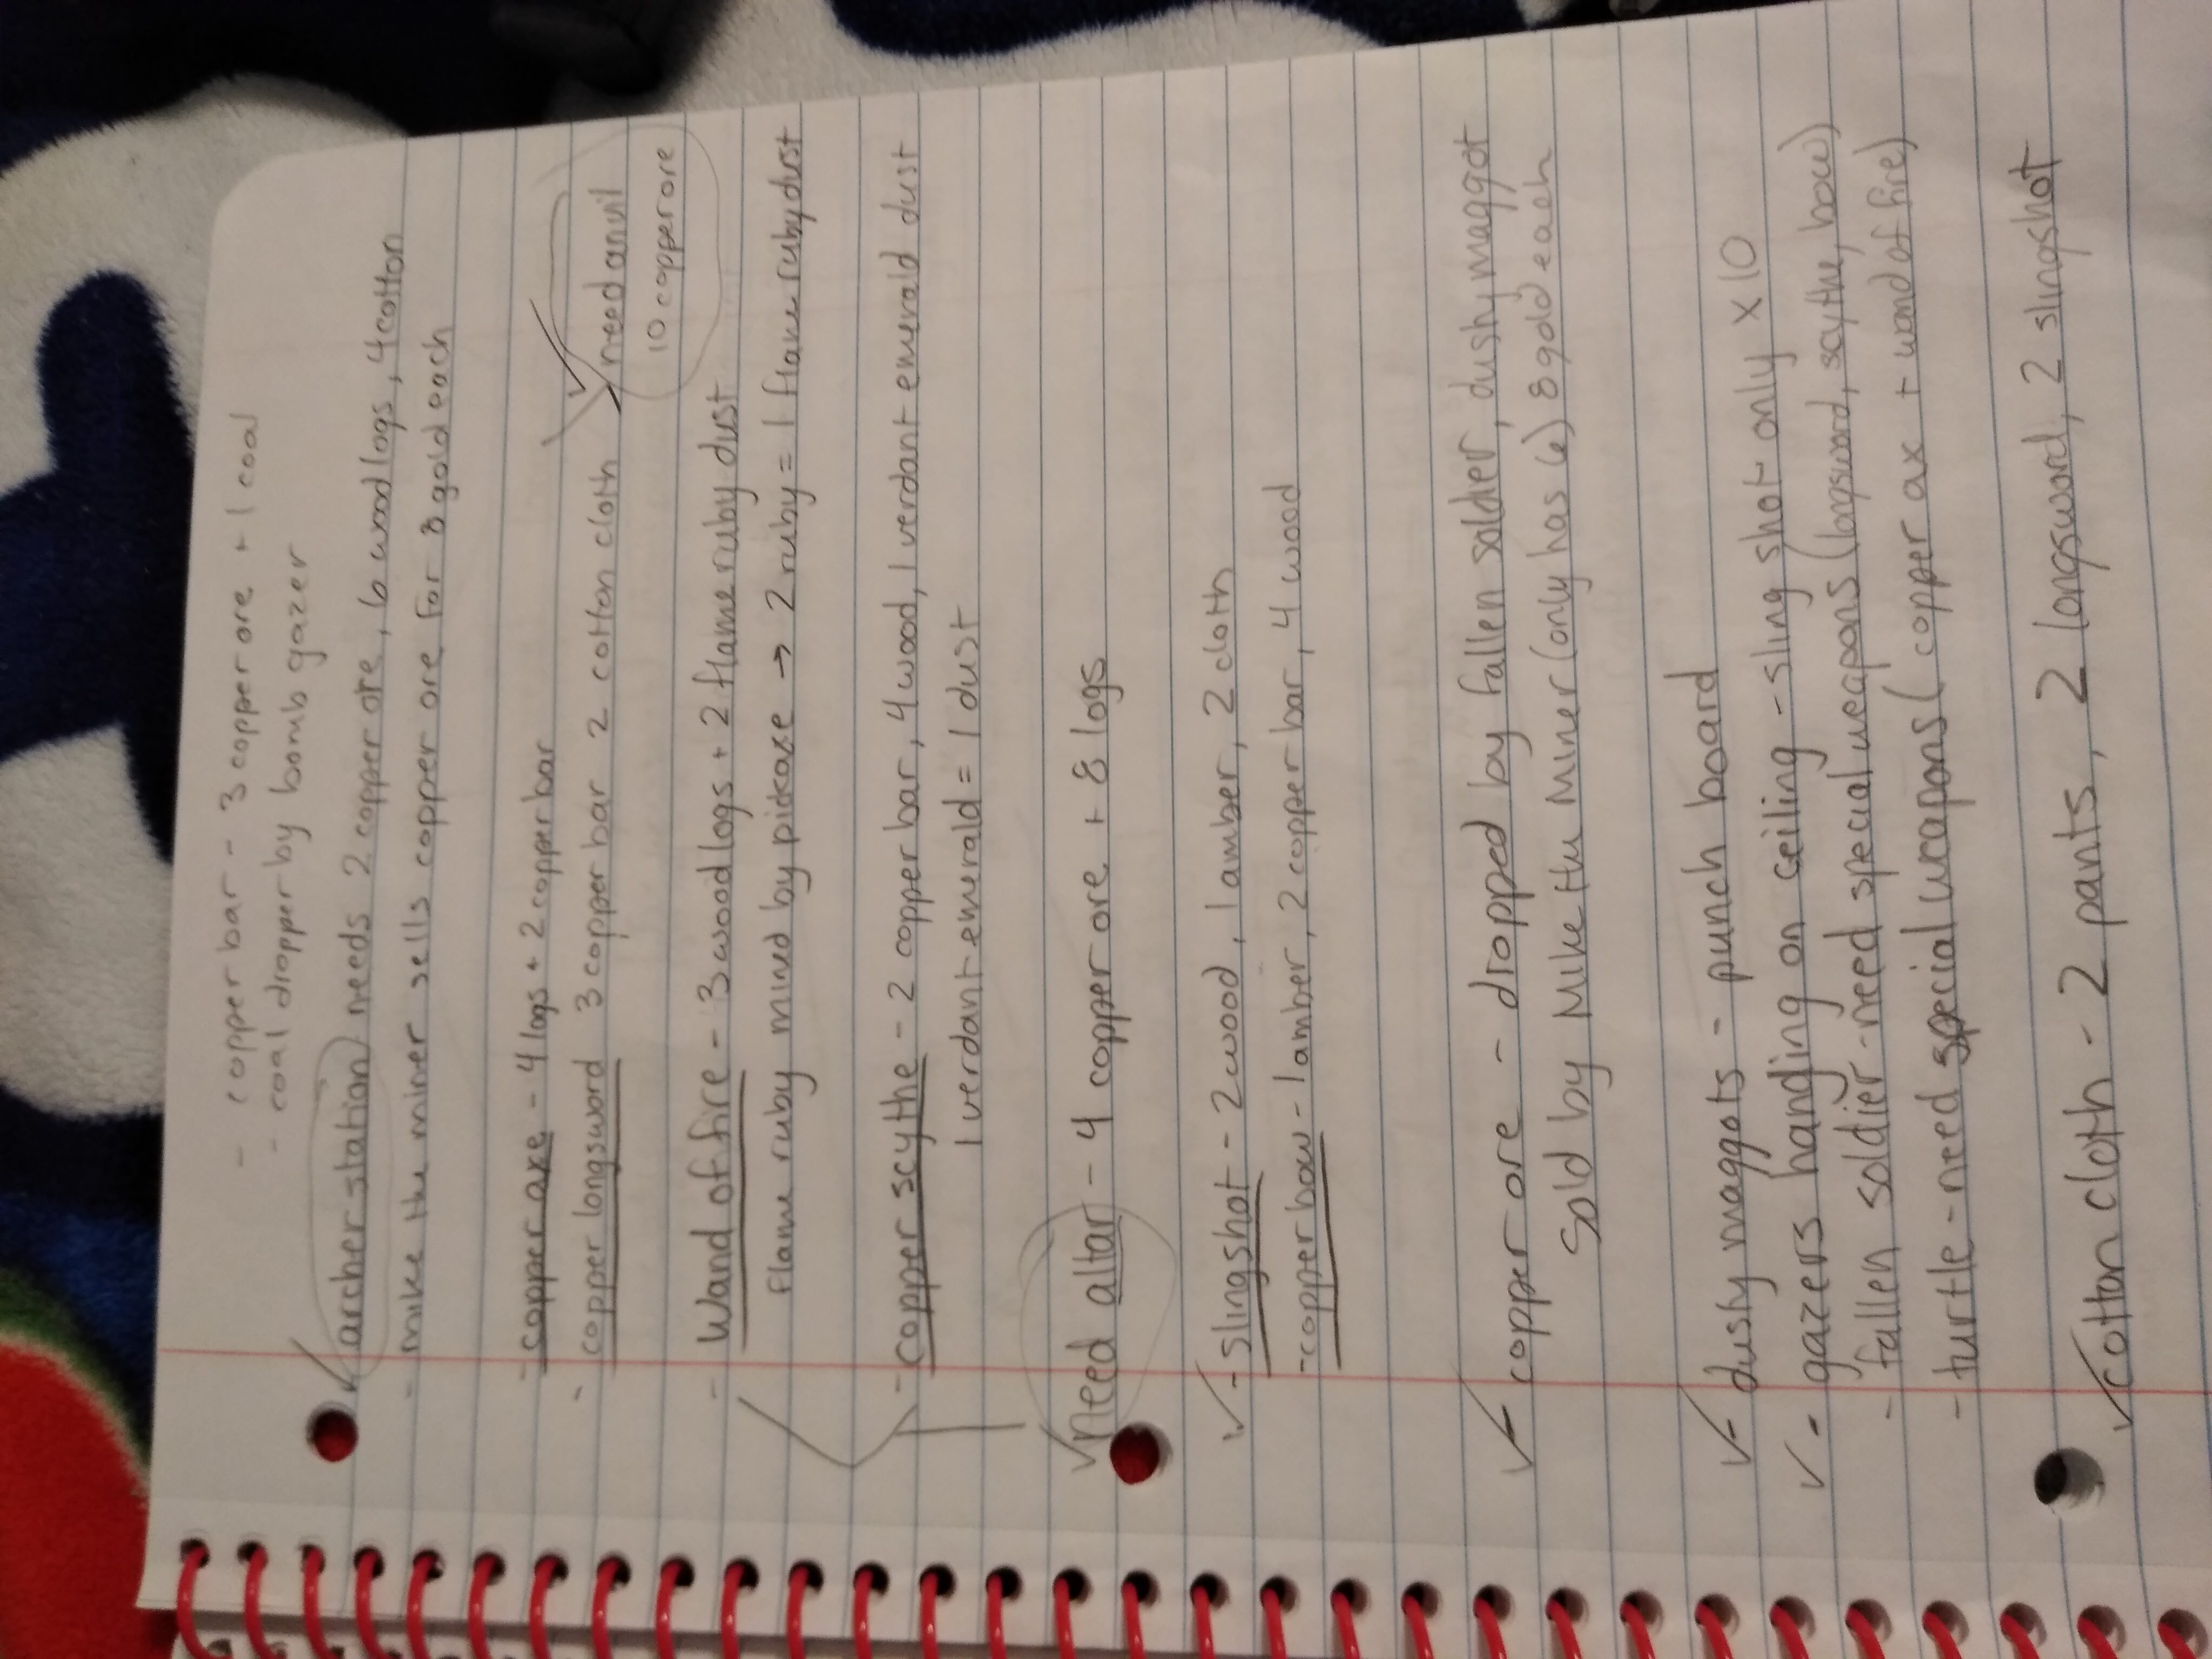 - copper bar - 3 copper ore + 1 coal
- coal dropper by bomb gazer
✓ archer station needs 2 copper ore, 6 wood logs, 4 cotton
- mike the miner sells copper ore for 8 gold each
- copper axe - 4 logs + 2 copper bar
- copper longsword 3 copper bar 2 cotton cloth > need anvil
10 copper ore
- Wand of fire - 3 wood logs + 2 flame ruby dust
Flame ruby mined by pickaxe → 2 ruby = 1 flame ruby dust
- copper scythe - 2 copper bar, 4 wood, 1 verdant emerald dust
1 verdant emerald = 1 dust
✓ need altar - 4 copper ore + 8 logs
✓ - slingshot - 2 wood, 1 amber, 2 cloth
- copper bow - 1 amber, 2 copper bar, 4 wood
✓ copper ore - dropped by fallen soldier, dushy maggot
Sold by Mike the Miner (only has 6) 8 gold each
✓ - dushy maggots - punch board
✓ - gazers handing on ceiling - sling shot only x 10
- fallen soldier - need special weapons (longsword, scythe, bow)
- turtle - need special weapons (copper ax + wand of fire)
✓ cotton cloth - 2 pants, 2 longsword, 2 slingshot